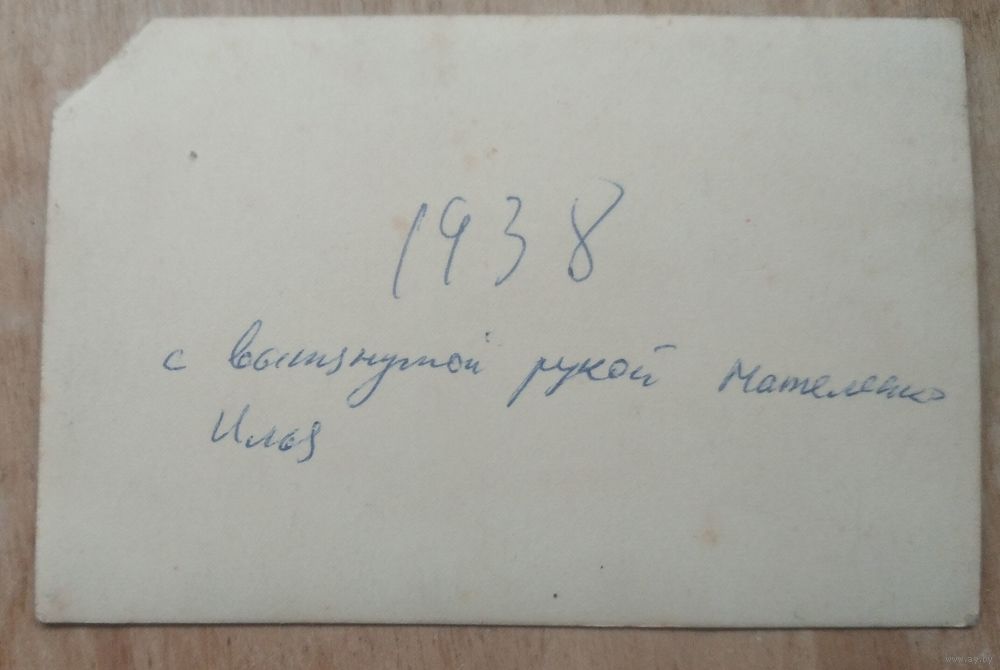 1938
с вытянутой рукой Мателенко
Илья
www.ay.by